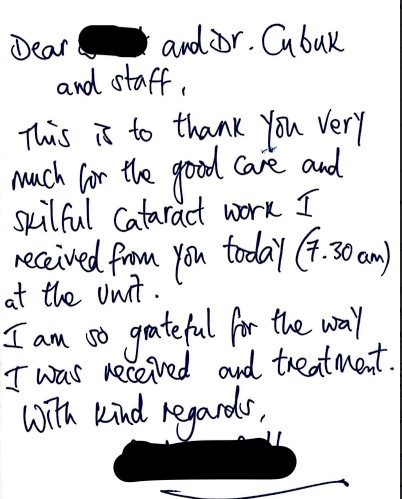 Dear and Dr. Cubuk
and staff,
This is to thank you very
much for the good care and
skilful cataract work I
received from you today (7.30 am)
at the unit.
I am so grateful for the way
I was received and treatment.
With kind regards,